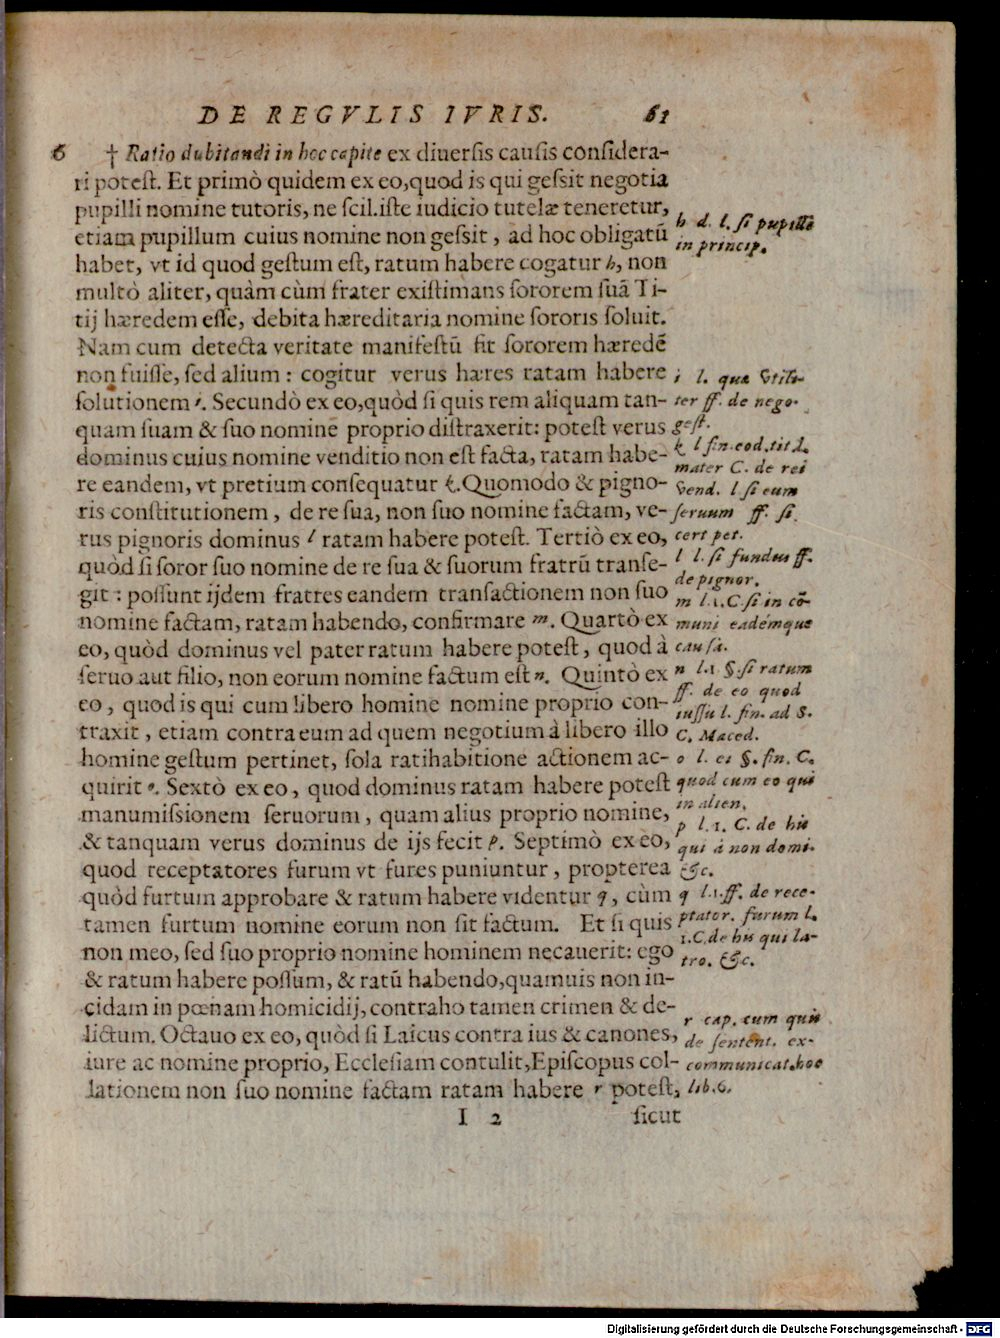 DE REGVLIS IVRIS. 61
6 † Ratio dubitandi in hoc capite ex diuersis causis considera-
ri potest. Et primò quidem ex eo, quod is qui gessit negotia
pupilli nomine tutoris, ne scil. iste iudicio tutelæ teneretur,
etiam pupillum cuius nomine non gessit, ad hoc obligatū
habet, vt id quod gestum est, ratum habere cogatur h, non
multò aliter, quàm cùm frater existimans sororem suā Ti-
tij hæredem esse, debita hæreditaria nomine sororis soluit.
Nam cum detecta veritate manifestū fit sororem hæredē
non fuisse, sed alium: cogitur verus hæres ratam habere
solutionem i. Secundò ex eo, quòd si quis rem aliquam tan-
quam suam & suo nomine proprio distraxerit: potest verus
dominus cuius nomine venditio non est facta, ratam habe-
re eandem, vt pretium consequatur k. Quomodo & pigno-
ris constitutionem, de re sua, non suo nomine factam, ve-
rus pignoris dominus l ratam habere potest. Tertiò ex eo,
quòd si soror suo nomine de re sua & suorum fratrū transe-
git: possunt ijdem fratres eandem transactionem non suo
nomine factam, ratam habendo, confirmare m. Quartò ex
eo, quòd dominus vel pater ratum habere potest, quod à
seruo aut filio, non eorum nomine factum est n. Quintò ex
eo, quod is qui cum libero homine nomine proprio con-
traxit, etiam contra eum ad quem negotium à libero illo
homine gestum pertinet, sola ratihabitione actionem ac-
quirit o. Sextò ex eo, quod dominus ratam habere potest
manumissionem seruorum, quam alius proprio nomine,
& tanquam verus dominus de ijs fecit p. Septimò ex eo,
quod receptatores furum vt fures puniuntur, propterea
quòd furtum approbare & ratum habere videntur q, cùm
tamen furtum nomine eorum non sit factum. Et si quis
non meo, sed suo proprio nomine hominem necauerit: ego
& ratum habere possum, & ratū habendo, quamuis non in-
cidam in pœnam homicidij, contraho tamen crimen & de-
lictum. Octauo ex eo, quòd si Laicus contra ius & canones,
iure ac nomine proprio, Ecclesiam contulit, Episcopus col-
lationem non suo nomine factam ratam habere r potest,
I 2 sicut
h d. l. si pupilli
in princip.
i l. quæ vtili-
ter ff. de nego.
gest.
k l fin. eod. tit l.
mater C. de rei
vend. l si eum
seruum ff. si
cert pet.
l l. si fundus ff.
de pignor.
m l.1. C. si in cō-
muni eademque
causa.
n l.1 §. si ratum
ff. de eo quod
iussu l. fin. ad S.
C. Maced.
o l. et §. fin. C.
quod cum eo qui
in alien.
p l.1. C. de his
qui à non domi.
&c.
q l.1. ff. de rece-
ptator. furum l.
1. C. de his qui la-
tro. &c.
r cap. cum quis
de sentent. ex-
communicat. hoc
lib. 6.
Digitalisierung gefördert durch die Deutsche Forschungsgemeinschaft - DFG